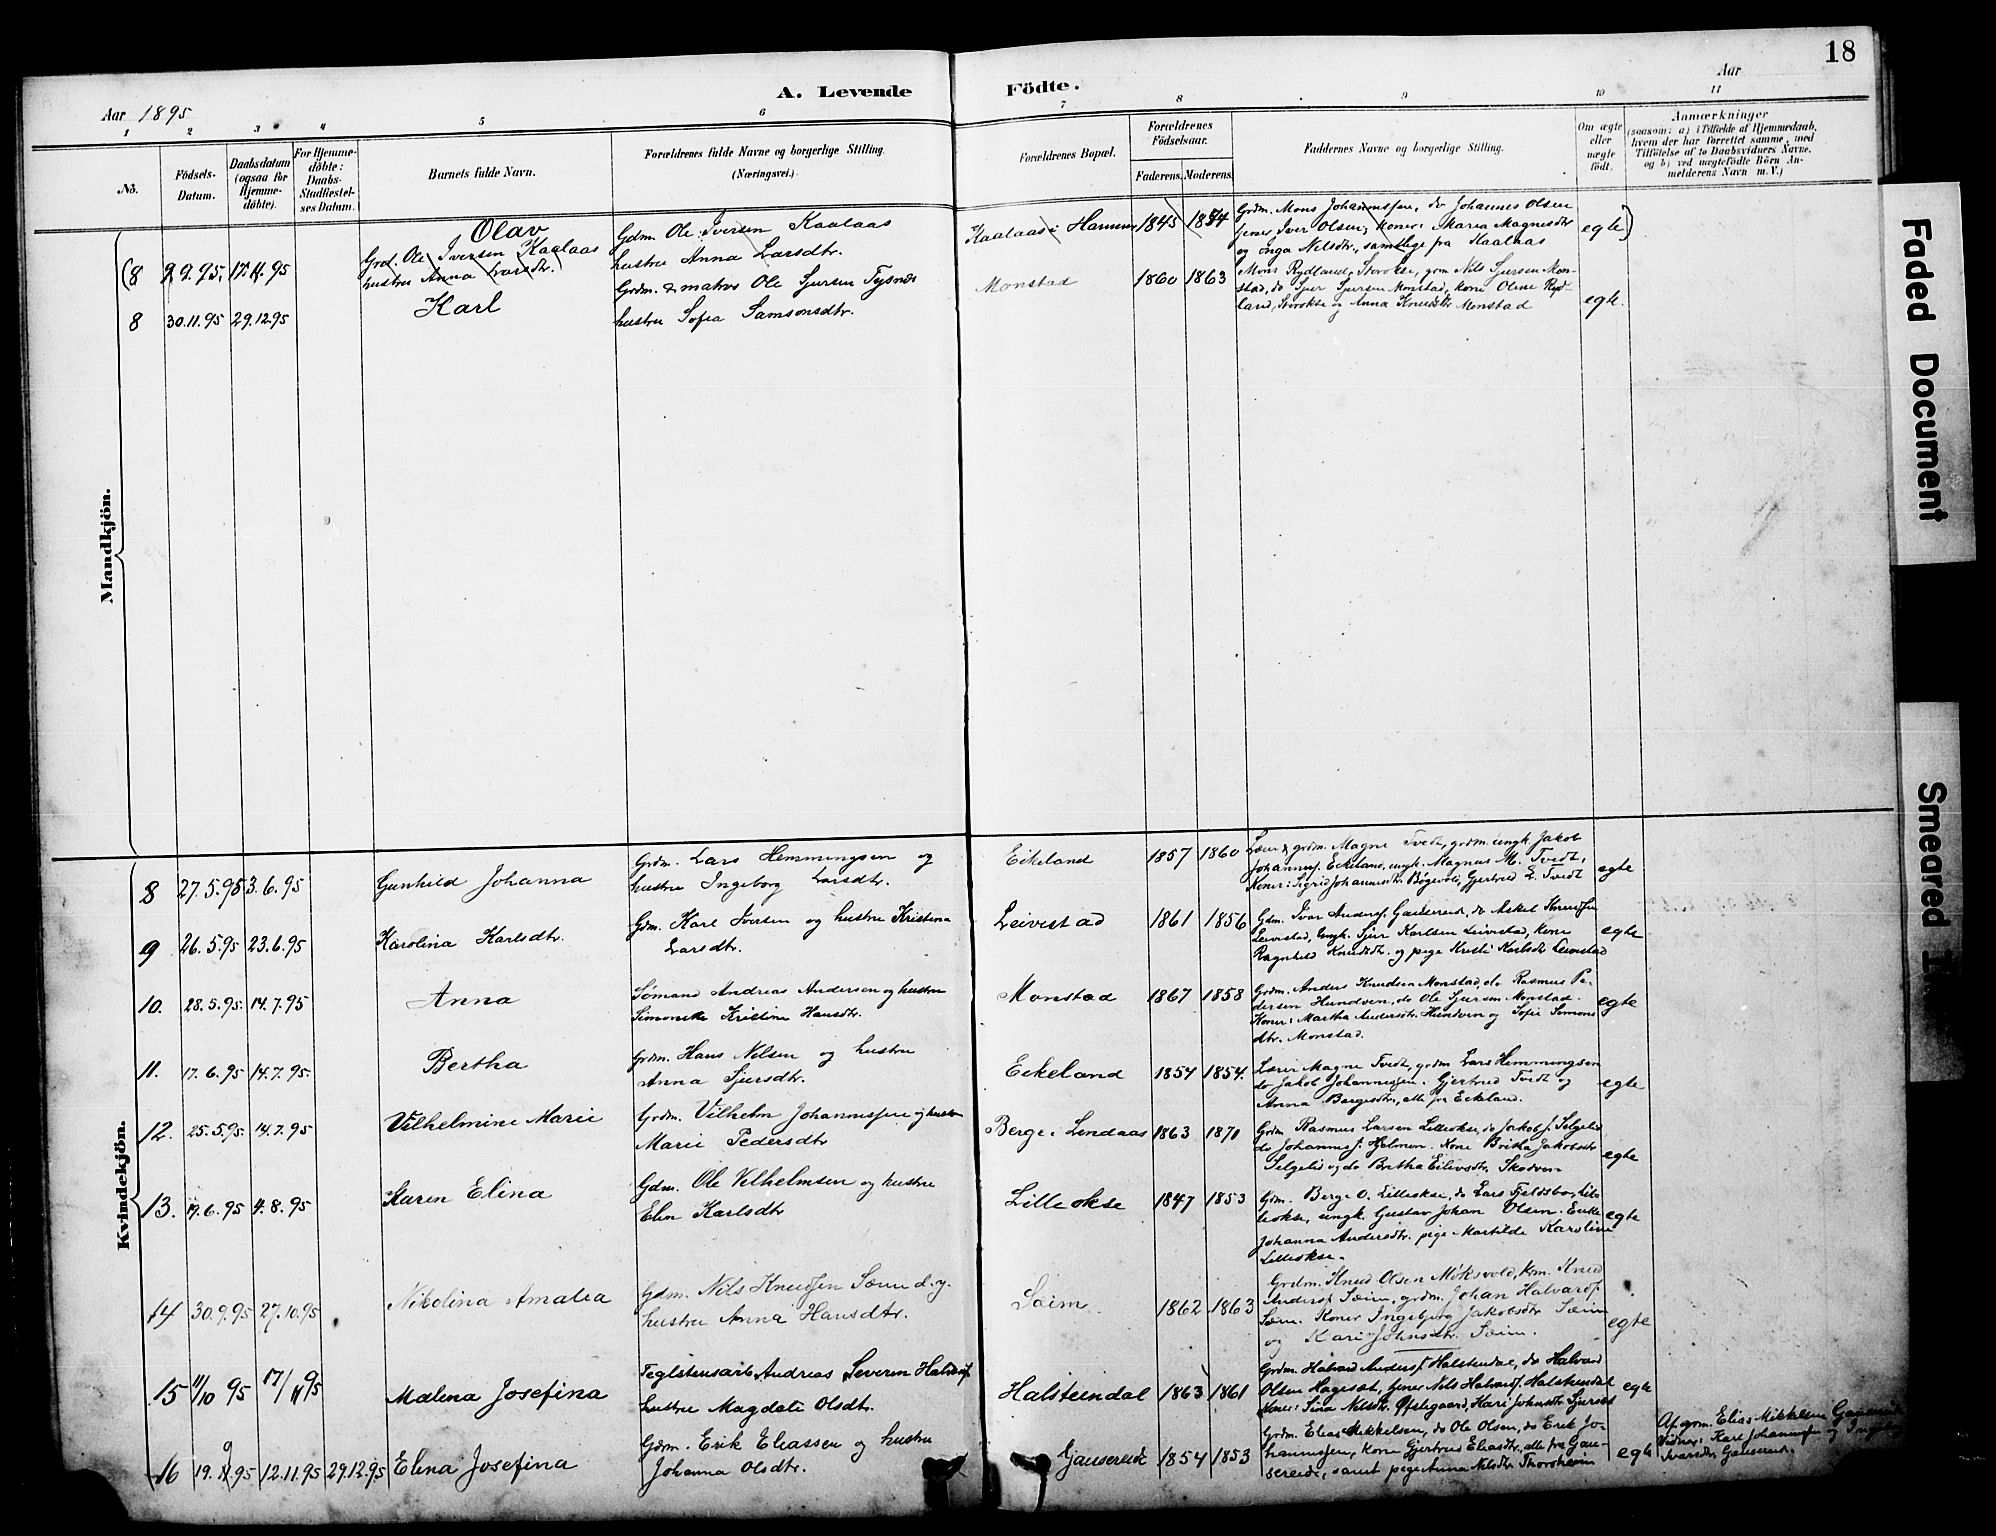 18
Aar 1895
A. Levende Födte.
Aar
1 2 3 4 5 6 7 8 9 10 11
No.
Födsels-Datum.
Daabsdatum (ogsaa for Hjemme-döbte).
For Hjemme-döbte: Daabs-Stadfæstel-ses Datum.
Barnets fulde Navn.
Forældrenes fulde Navne og borgerlige Stilling.
(Næringsvei.)
Forældrenes Bopæl.
Forældrenes Födselsaar.
Faderens. Moderens.
Faddernes Navne og borgerlige Stilling.
Om ægte eller uægte födt.
Anmærkninger
(saasom: a) i Tilfælde af Hjemmedaab, hvem der har forrettet samme, med Tilföielse af to Daabsvidners Navne. og b) ved uægtefödte Börn An-melderens Navn m.V.)
Mandkjön.
(8 9.9.95. 17.11.95
Olav
Grd. Ole Iversen Kaalaas
hustru Anna Larsdtr.
Gdm. Ole Iversen Kaalaas
hustru Anna Larsdtr.
Kaalaas i Hammer 1845 1854
Grdm. Mons Johannessen, do Johannes Olsen
Iver Olsen, Koner: Maria Magnesdtr
og Inga Nilsdtr., samtlige fra Kaalaas
egte)
8 30.11.95 29.12.95
Karl
Grdm. & Ole Sjursen Tysnes
hustru Sofia Samsonsdtr.
Monstad 1860 1863
Mons Rydland, Storokse, grm Nils Sjursen Mon-
stad, do Sjur Sjursen Monstad, kone Oline Ryd-
land, Storokse og Anna Knudsdtr Monstad
egte.
Kvindekjön.
8 27.5.95 3.6.95
Gunhild Johanna
Grdm. Lars Hemmingsen og
hustru Ingeborg Larsdtr.
Eikeland 1857 1860
Lærer & grdm. Magne Tvedt, grdm. ungk Jakob
Johannesf. Eikeland, ungk. Magnus M. Tvedt,
Koner: Sigrid Johannesdtr. Bögevold, Gjertrud L. Tvedt
egte
9 26.5.95 23.6.95
Karolina Karlsdtr.
Gdm. Karl Iversen og hustru Kristina
Larsdtr.
Leivestad 1861 1856
Gdm. Ivar Andersf. Gausereid, do Askel Knudsen
Leivestad, Ungk. Sjur Karlsen Leivestad, Kone
Ragnhild Knudsdtr. og pige Kristi Karlsdtr Leivestad
egte
10. 28.5.95. 14.7.95
Anna
Sömand Andreas Andersen og hustru
Kristine Hansdtr.
Monstad 1867 1858
Grdm. Anders Knudsen Monstad, do Rasmus Pe-
dersen Hundven, do Ole Sjursen Monstad.
Koner: Martha Andersdtr. Hundven og Sofie Simons
dtr. Monstad.
egte
11. 17.6.95 14.7.95.
Bertha
Grdm. Hans Nilsen og hustru
Anna Sjursdtr.
Eikeland 1854 1854.
Lærer Magne Tvedt, grdm. Lars Hemmingsen
do Jakob Johannessen. Gjertrud Tvedt og
Anna Børgesdtr., alle fra Eikeland.
egte
12. 25.5.95 14.7.95
Vilhelmine Marie
Grdm. Vilhelm Johannessen og hustru
Marie Pedersdtr
Berge i Lindaas 1863 1870
Grdm Rasmus Larsen Lilleokse, do Jakob J. Selgelid
do Johannes J. Hjelmen. Kone Britha Jakobsdtr
Selgelid og do Britha Eilivsdtr. Skodven
egte
13. 19.6.95 4.8.95
Karen Elina
Gdm. Ole Vilhelmsen og hustru
Elin Karlsdtr
Lilleokse 1847 1853
Gdm. Berge O. Lilleokse, do Lars Fjeldsbø, Lil-
leokse, ungk. Gustav Johan Olsen. Enke
Johanna Andersdtr. pige Martilde Karoline
Lilleokse.
egte
14 30.9.95 27.10.95
Nikolina Amalia
Gdm. Nils Knudsen Sæim d.y.
hustru Anna Hansdtr.
Sæim. 1862 1863
Grdm. Knud Olsen Møksvold, Knud
Andersf Sæim, grdm. Johan Halvorsf
Sæim. Koner Ingebjørg Jakobsdtr Sæim
og Kari Johnsdtr. Sæim.
egte
15 11/10 95 17/11 95
Malena Josefina
Teglstensarb. Andreas Severin Halvorsf
hustru Magdali Olsdtr.
Halsteindal 1863 1861
Grdm. Halvard Andersf Halsteindal, do Halvard
Olsen Hagesæt, Nils Halvorsf. Halsteindal
Koner: Sina Nilsdtr. Øfstegaard, Kari Johnsdtr
egte
16 19.9.95 12.11.95 29.12.95
Elena Josefina
Gdm. Erik Eliassen og hustru
Johanna Olsdtr.
Gausereid 1854 1853
Grdm. Elias Mikkelsen, do Ole Olsen, do Erik Jo-
hannessen, Kone Gjertrud Eliasdtr., alle fra Gau-
sereide, samt pige Anna Nilsdtr Thorsheim
egte
Af grm. Elias Mikkelsen Gausereid
Vidner: Karl Johannessen og
Ivarsdtr. Gausereid.
Faded Document
Smeared